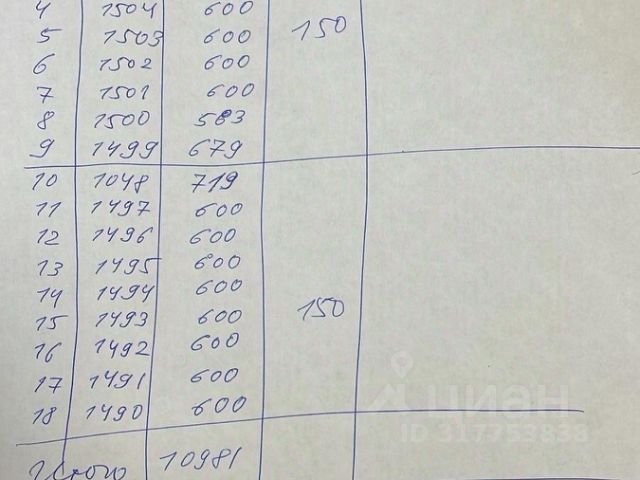 4 1504 600
5 1503 600 150
6 1502 600
7 1501 600
8 1500 583
9 1499 679
10 1048 719
11 1497 600
12 1496 600
13 1495 600
14 1494 600
15 1493 600 150
16 1492 600
17 1491 600
18 1490 600
циан
ID 317753838
Итого 10981